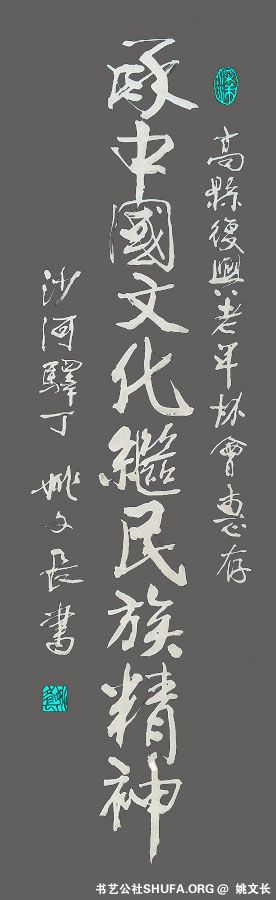 高縣復興老年會惠存
承中國文化繼民族精神
沙河驛丁 姚文長書
书艺公社SHUFA.ORG @ 姚文长